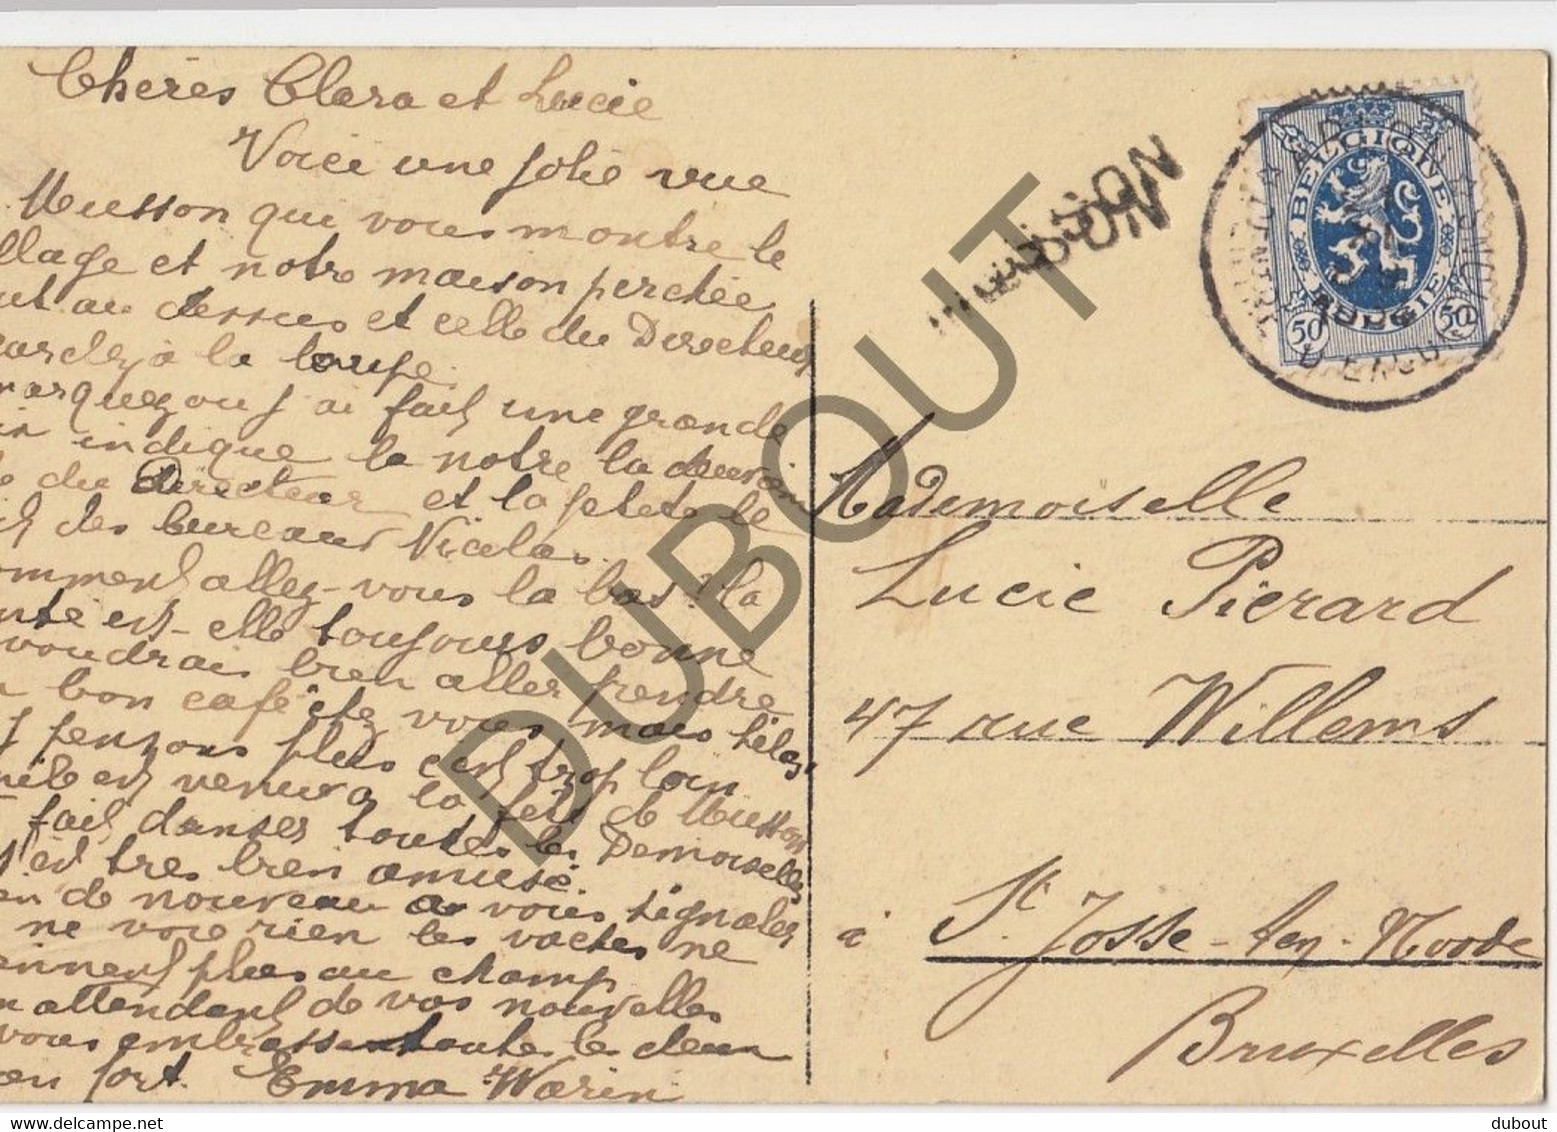 Chères Clara et Lucie
Voici une jolie vue
Musson qui vous montre le
llage et notre maison perchée
ut au dessus et celle du Directeur
à la loupe.
j'ai fait une grande
indique la notre la
du Directeur et la petete le
des bureaux Nicolas.
omment allez-vous la bas? la
nte est-elle toujours bonne
voudrais bien aller prendre
bon café chez vous mais hélas
pensons plus c'est trop loin
est venu a la fête de Musson
fait danser toutes les Demoiselles
est tres bien amusé.
en de nouveau a vous signaler
ne voie rien les vaches ne
ennent plus au champ
n attendant de vos nouvelles
vous embrasse toutes les deux
en fort. Emma Warin
MUSSON
MUSSON
BELGIQUE
BELGIE
50 50
Mademoiselle
Lucie Pierard
47 rue Willems
à St. Josse-ten-Noode
Bruxelles
DUBOUT
delcampe.net
dubout